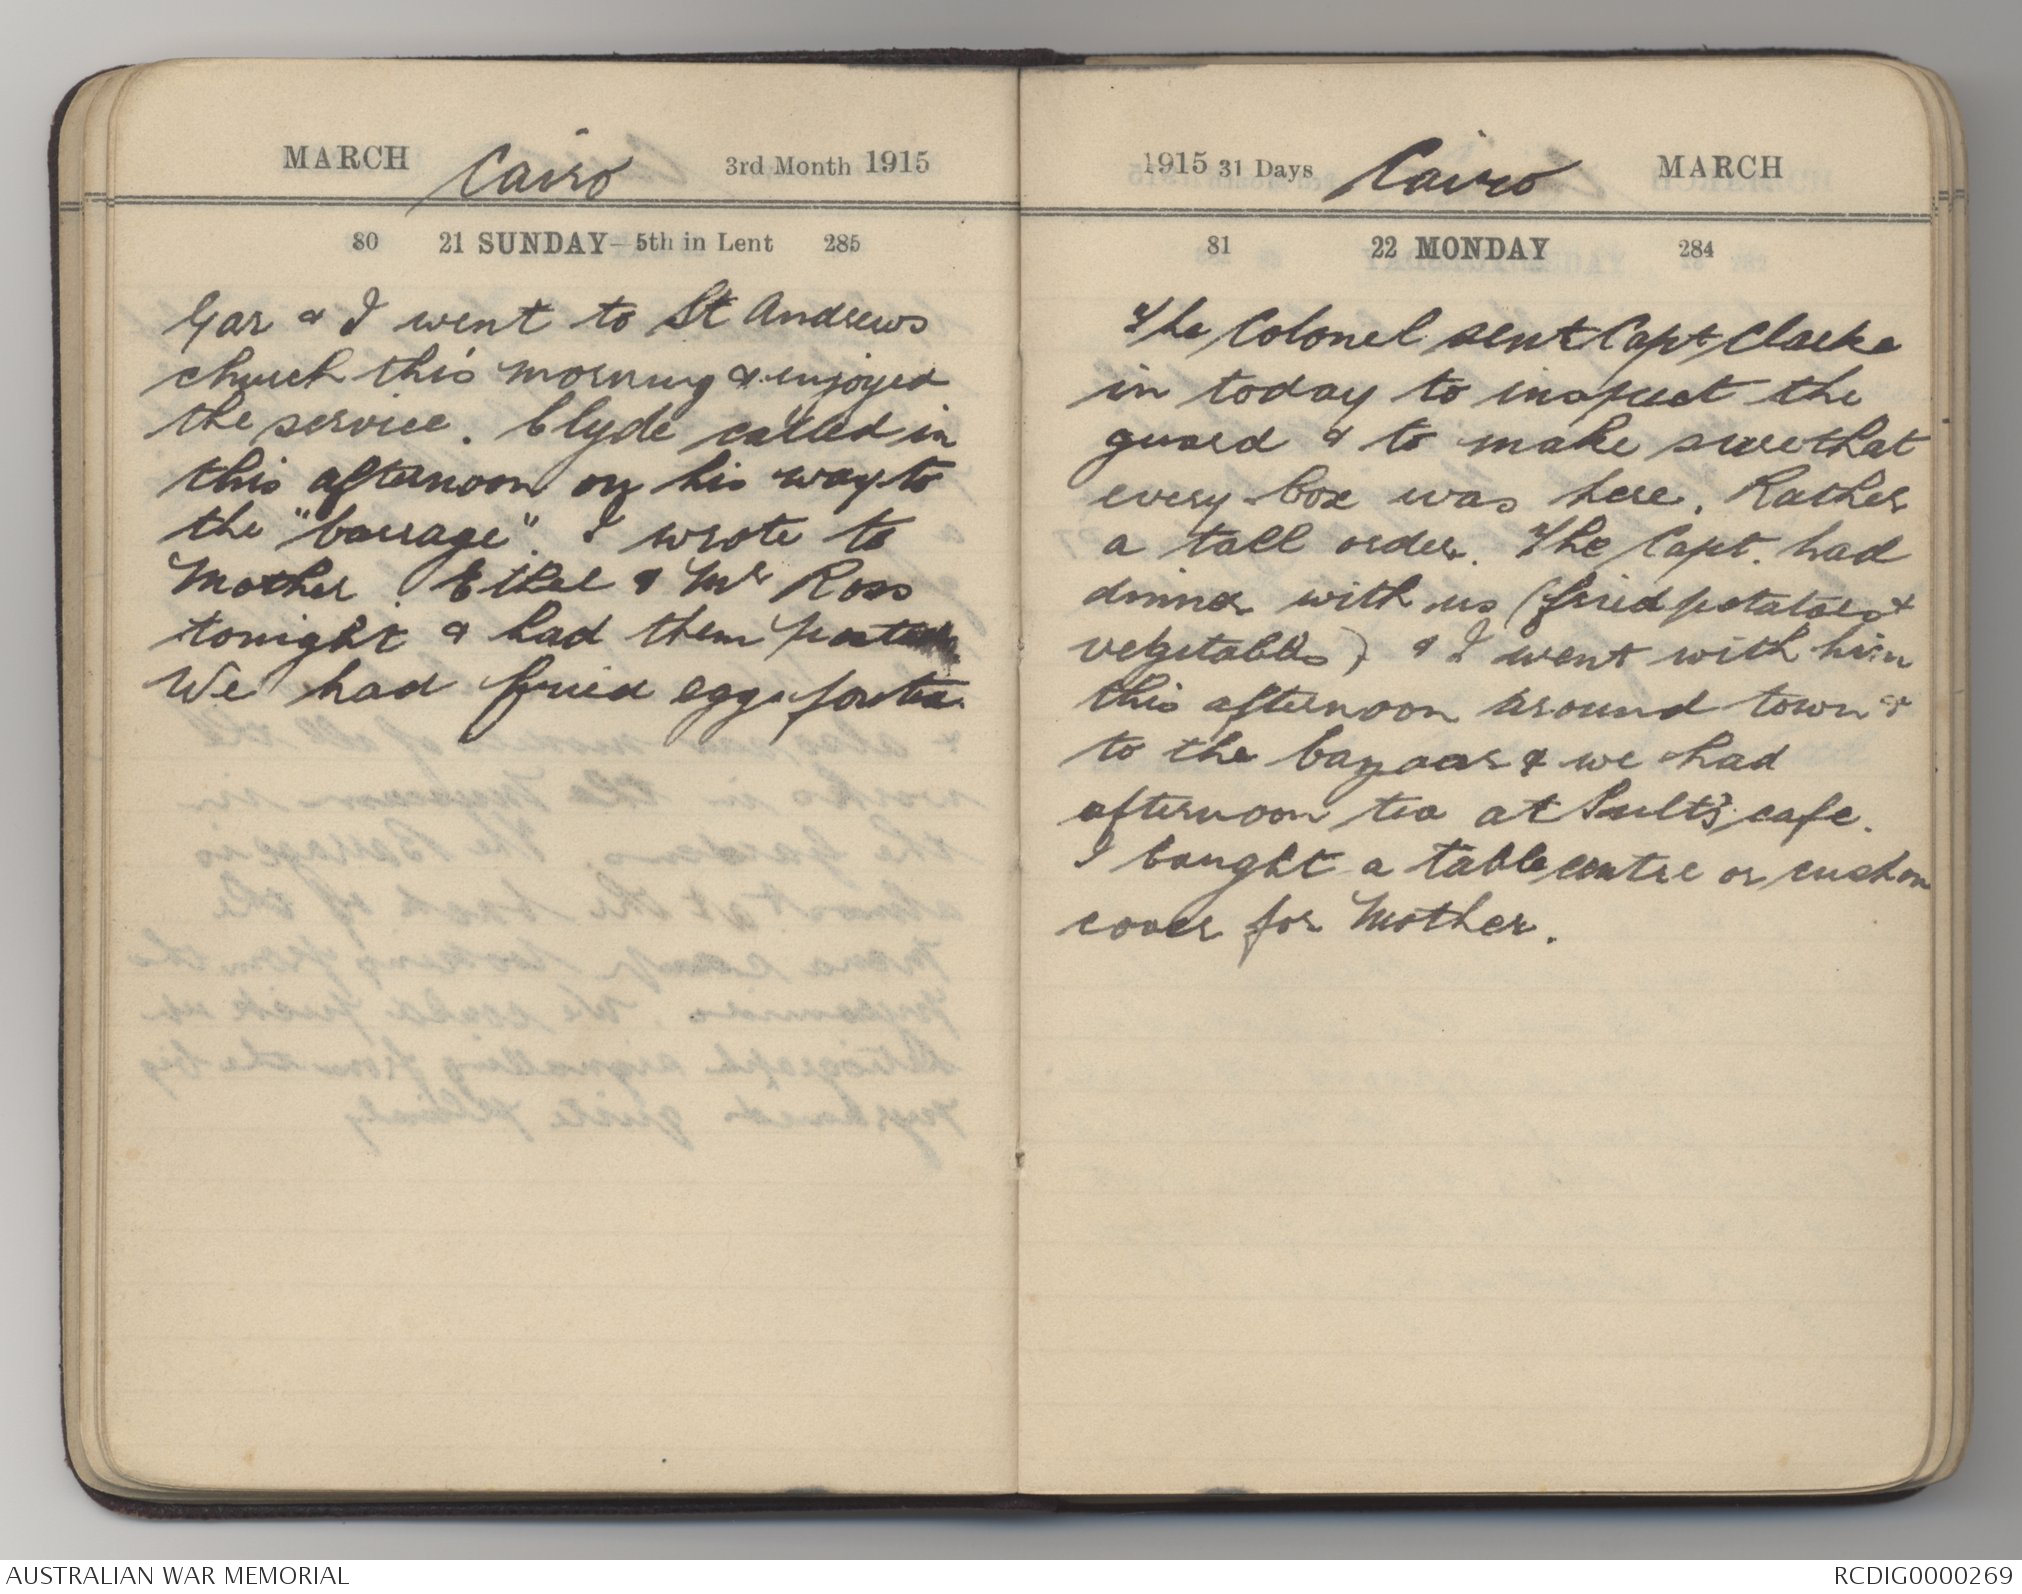 MARCH Cairo 3rd Month 1915
80 21 SUNDAY–5th in Lent 285
Gar & I went to St Andrews
church this morning & enjoyed
the service. Clyde called in
this afternoon on his way to
the "barrage". I wrote to
Mother. Ethel & Mr Ross
tonight & had them
We had fried eggs for tea.
1915 31 Days Cairo MARCH
81 22 MONDAY 284
The Colonel sent Capt Clarke
in today to inspect the
guard & to make sure that
every box was here. Rather
a tall order. The Capt. had
dinner with us (fried potatoes &
vegetables) & I went with him
this afternoon around town &
to the bazaars & we had
afternoon tea at Sault's cafe.
I bought a table centre or cushion
cover for Mother.
AUSTRALIAN WAR MEMORIAL RCDIG0000269